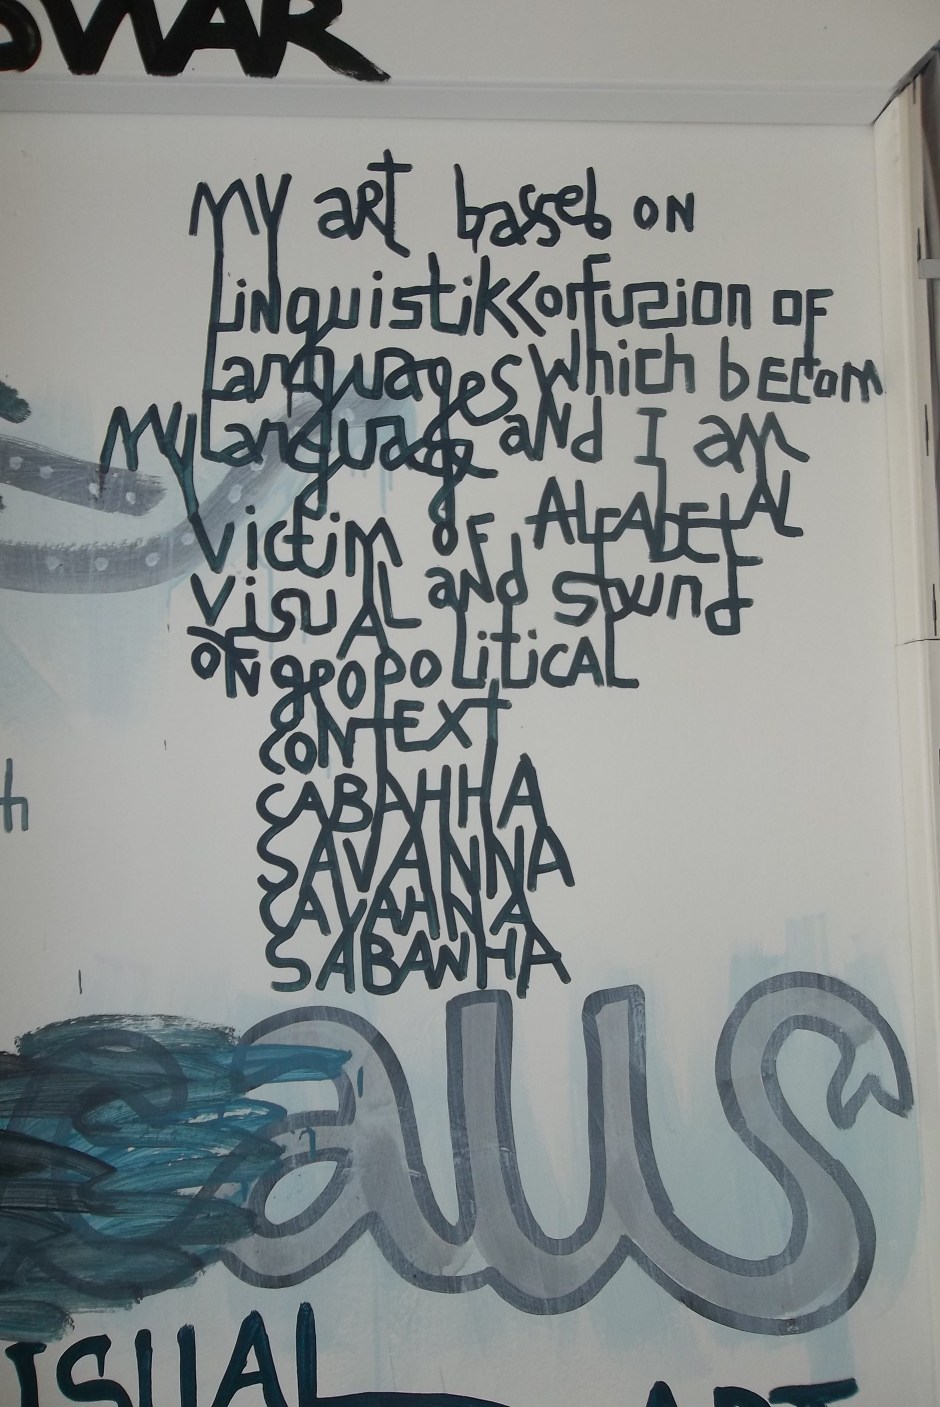 WAR
MY aRt bassed ON
LiNguistik Confuzion OF
Languages which becom
My Language aNd I am
Victim OF ALFABETAL
Visual aNd sound
ON geopolitical
CONTEXT
CABAHHA
SAVANNA
CAVAHNA
SABANHA
th
aus
ISUAL ART